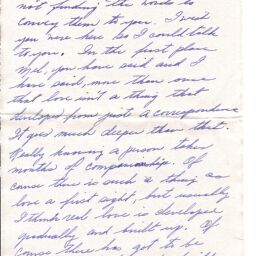 not finding the words to
convey them to you. I wish
you were here so I could talk
to you. In the first place
Mel, you have said and I
have said, more than once
that love isn't a thing that
develops from just a correspondence
It goes much deeper than that.
Really knowing a person takes
months of companionship. Of
course there is such a thing as
love a first sight, but usually
I think real love is developed
gradually and built up. Of
course there has got to be